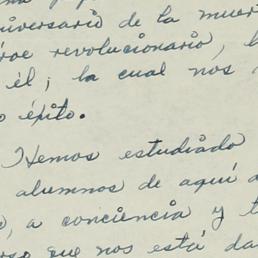 niversario de la muer
roe revolucionario,
él; la cual nos
o éxito.
Hemos estudiado
alumnos de aquí
a conciencia y t
rso que nos está da